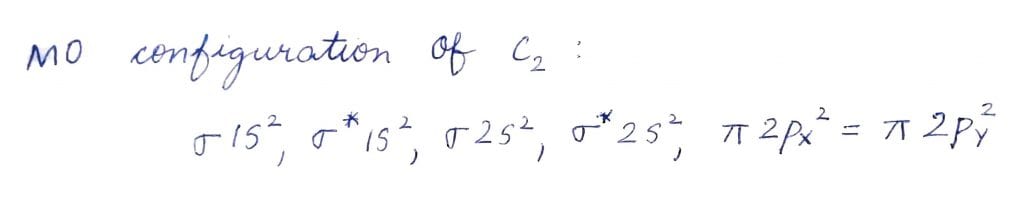 MO configuration of C₂ :
σ1s², σ*1s², σ2s², σ*2s², π2pₓ² = π2pᵧ²